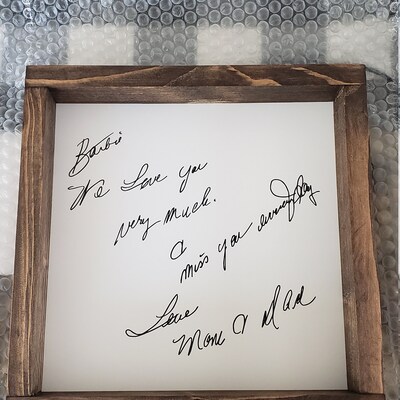 Barbie
We Love you
very much.
&
miss you everyday
Love
Mom & Dad